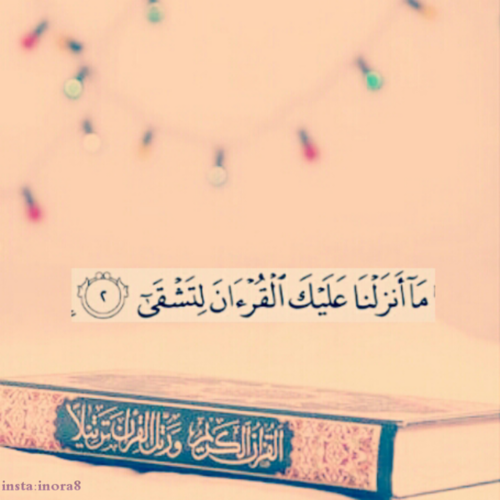 مَآ أَنزَلۡنَا عَلَيۡكَ ٱلۡقُرۡءَانَ لِتَشۡقَىٰٓ ٢
القرآن الكريم ورتل القرآن ترتيلا
insta:inora8